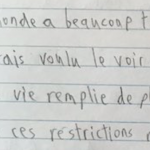 onde a beaucoup
rais voulu le voir
vie remplie de
ces restrictions